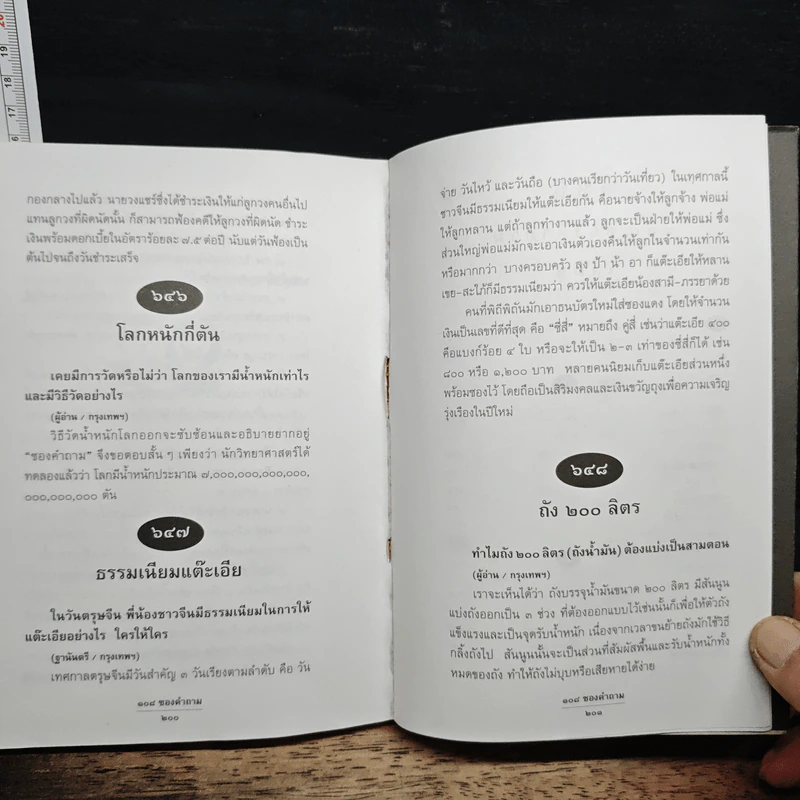 20
19
18
17
กองกลางไปแล้ว นายวงแชร์ซึ่งได้ชำระเงินให้แก่ลูกวงคนอื่นไป
แทนลูกวงที่ผิดนัดนั้น ก็สามารถฟ้องคดีให้ลูกวงที่ผิดนัด ชำระ
เงินพร้อมดอกเบี้ยในอัตราร้อยละ ๗.๕ ต่อปี นับแต่วันฟ้องเป็น
ต้นไปจนถึงวันชำระเสร็จ
๖๔๖
โลกหนักกี่ตัน
เคยมีการวัดหรือไม่ว่า โลกของเรามีน้ำหนักเท่าไร
และมีวิธีวัดอย่างไร
(ผู้อ่าน / กรุงเทพฯ)
วิธีวัดน้ำหนักโลกออกจะซับซ้อนและอธิบายยากอยู่
“ซองคำถาม” จึงขอตอบสั้น ๆ เพียงว่า นักวิทยาศาสตร์ได้
ทดลองแล้วว่า โลกมีน้ำหนักประมาณ ๗,๐๐๐,๐๐๐,๐๐๐,๐๐๐,
๐๐๐,๐๐๐,๐๐๐ ตัน
๖๔๗
ธรรมเนียมแต๊ะเอีย
ในวันตรุษจีน พี่น้องชาวจีนมีธรรมเนียมในการให้
แต๊ะเอียอย่างไร ใครให้ใคร
(ฐานันตรี / กรุงเทพฯ)
เทศกาลตรุษจีนมีวันสำคัญ ๓ วันเรียงตามลำดับ คือ วัน
๑๐๘ ซองคำถาม
๒๐๐
จ่าย วันไหว้ และวันถือ (บางคนเรียกว่าวันเที่ยว) ในเทศกาลนี้
ชาวจีนมีธรรมเนียมให้แต๊ะเอียกัน คือนายจ้างให้ลูกจ้าง พ่อแม่
ให้ลูกหลาน แต่ถ้าลูกทำงานแล้ว ลูกจะเป็นฝ่ายให้พ่อแม่ ซึ่ง
ส่วนใหญ่พ่อแม่มักจะเอาเงินตัวเองคืนให้ลูกในจำนวนเท่ากัน
หรือมากกว่า บางครอบครัว ลุง ป้า น้า อา ก็แต๊ะเอียให้หลาน
เขย-สะใภ้ก็มีธรรมเนียมว่า ควรให้แต๊ะเอียน้องสามี-ภรรยาด้วย
คนที่พิถีพิถันมักเอาธนบัตรใหม่ใส่ซองแดง โดยให้จำนวน
เงินเป็นเลขที่ดีที่สุด คือ “ซี่สี่” หมายถึง คู่สี่ เช่นว่าแต๊ะเอีย ๔๐๐
คือแบงก์ร้อย ๔ ใบ หรือจะให้เป็น ๒-๓ เท่าของซี่สี่ก็ได้ เช่น
๘๐๐ หรือ ๑,๒๐๐ บาท หลายคนนิยมเก็บแต๊ะเอียส่วนหนึ่ง
พร้อมซองไว้ โดยถือเป็นสิริมงคลและเงินขวัญถุงเพื่อความเจริญ
รุ่งเรืองในปีใหม่
๖๔๘
ถัง ๒๐๐ ลิตร
ทำไมถัง ๒๐๐ ลิตร (ถังน้ำมัน) ต้องแบ่งเป็นสามตอน
(ผู้อ่าน / กรุงเทพฯ)
เราจะเห็นได้ว่า ถังบรรจุน้ำมันขนาด ๒๐๐ ลิตร มีสันนูน
แบ่งถังออกเป็น ๓ ช่วง ที่ต้องออกแบบไว้เช่นนั้นก็เพื่อให้ตัวถัง
แข็งแรงและเป็นจุดรับน้ำหนัก เนื่องจากเวลาขนย้ายถังมักใช้วิธี
กลิ้งถังไป สันนูนนั้นจะเป็นส่วนที่สัมผัสพื้นและรับน้ำหนักทั้ง
หมดของถัง ทำให้ถังไม่บุบหรือเสียหายได้ง่าย
๑๐๘ ซองคำถาม
๒๐๑